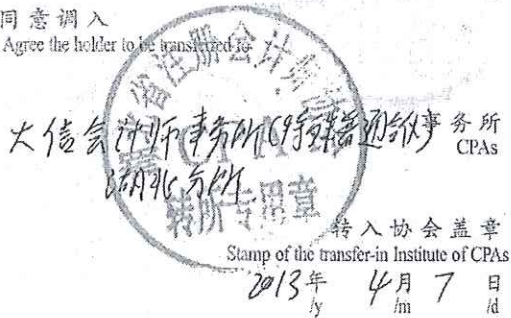 同意调入
Agree the holder to be transferred to
大信会计师事务所(特殊普通合伙)事务所
CPAs
湖北分所
转所专用章
转入协会盖章
Stamp of the transfer-in Institute of CPAs
2013年 4月 7 日
/y /m /d